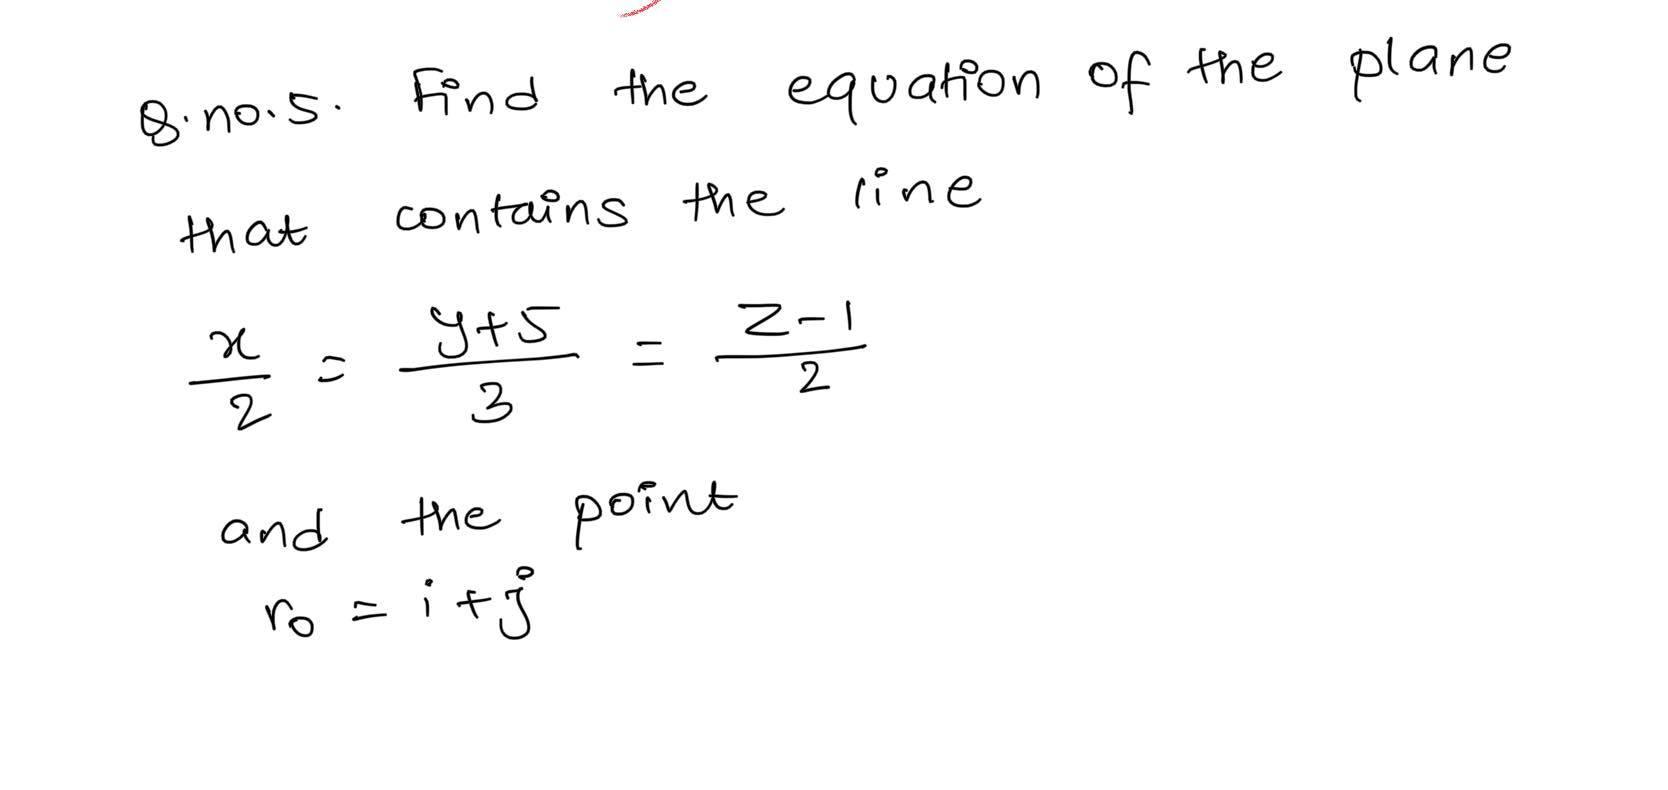 Q.no.5. Find the equation of the plane
that contains the line
x/2 = y+5/3 = z-1/2
and the point
r₀ = i + j